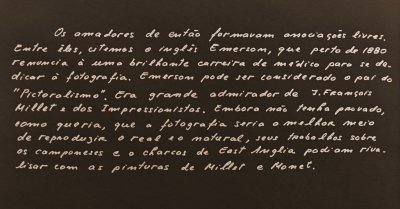 Os amadores de então formavam associações livres.
Entre êles, citemos o inglês Emerson, que perto de 1880
renuncia à uma brilhante carreira de médico para se de-
dicar à fotografia. Emerson pode ser considerado o pai do
"Pictoralismo". Era grande admirador de J. François
Millet e dos Impressionistas. Embora não tenha provado,
como queria, que a fotografia seria o melhor meio
de reproduzir o real e o natural, seus trabalhos sobre
os camponeses e o charcos de East Anglia podiam riva-
lisar com as pinturas de Millet e Monet.